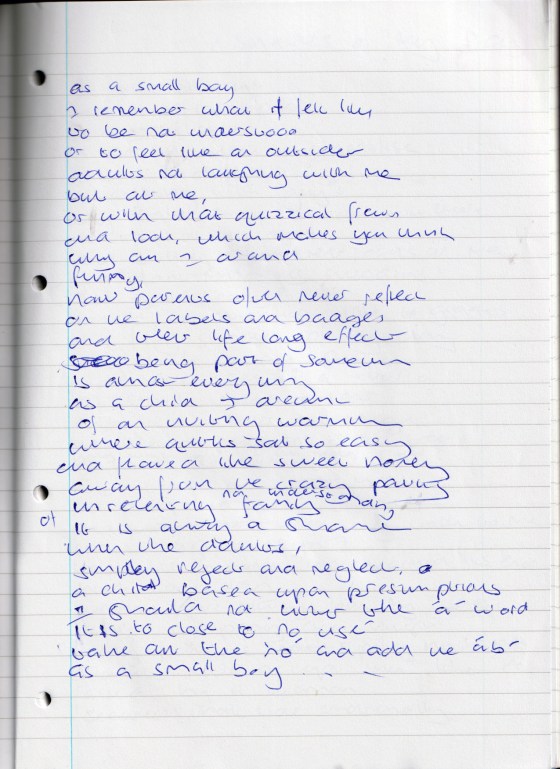 as a small boy
I remember what it felt like
to be not understood
or to feel like an outsider
adults not laughing with me
but at me,
or with that quizzical frown
and look, which makes you think
why am I around
funny,
how parents often never reflect
on the labels and badges
and their life long effect
being part of someone
is almost everything
as a child I dreamt
of an inviting warmth
where adults sat so easy
and flowed like sweet honey
away from the crazy paving
of unrelenting family
not understanding
It is always a shame
when the adults,
simpley reject and neglect,
a child based upon presumptions
I should not know the 'a' word
it is to close to no use
take all the 'no' and add the 'ab'
as a small boy . . .